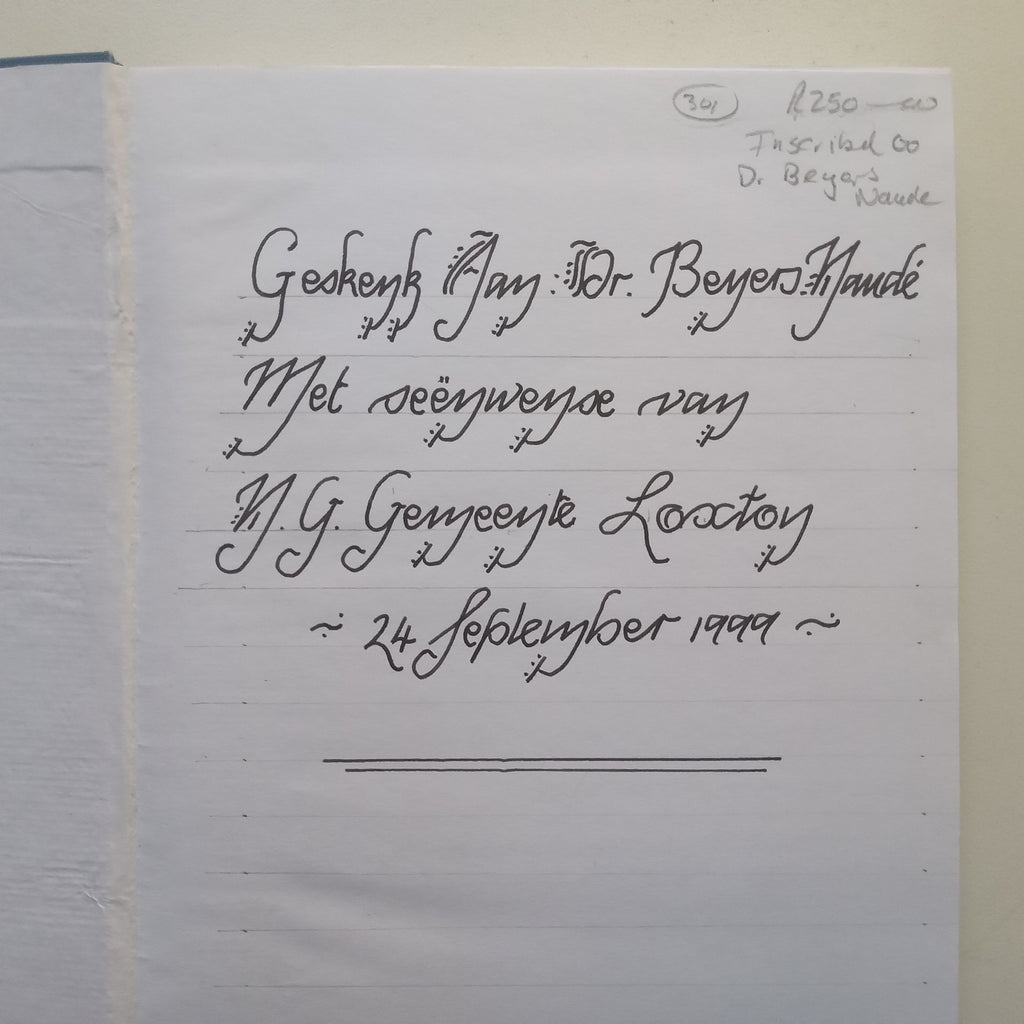 301 R250-00
Inscribed to
Dr Beyers
Naude
Geskenk Aan: Dr. Beyers Naudé
Met seënwense van
N.G. Gemeente Loxton
~ 24 September 1999 ~